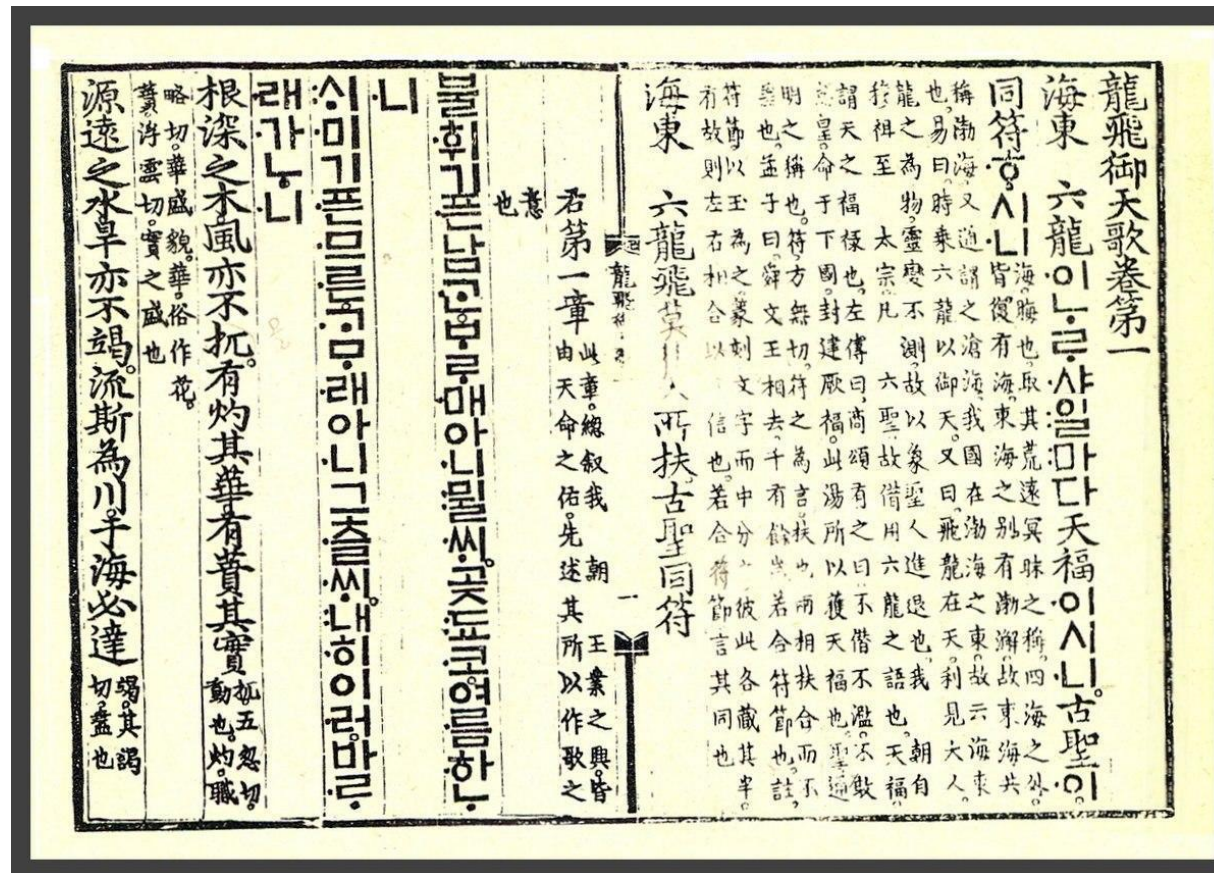 龍飛御天歌卷第一
海東 六龍·이ᄂᆞᄅᆞ·샤:일:마다天福·이시·니。古聖·이
同符·ᄒᆞ·시·니
海。晦也。取其荒遠冥昧之稱。四海之外。
皆復有海。東海之别有渤澥。故東海共
稱渤海。又通謂之滄海。我國在渤海之東。故云海東
也。易曰。時乘六龍以御天。又曰。飛龍在天。利見大人。
龍之為物。靈變不測。故以象聖人進退也。我 朝自
穆祖至 太宗。凡 六聖。故借用六龍之語也。天福。
謂天之福祿也。左傳曰。商頌有之曰。不僭不濫。不敢
怠皇。命于下國。封建厥福。此湯所以獲天福也。聖。通
明之稱也。符。方無切。符之為言。扶也。兩相扶合而不
差也。孟子曰。舜文王相去千有餘歲。若合符節也。註。
符節。以玉為之。篆刻文字而中分之。彼此各藏其半。
有故則左右相合以 信也。若合符節。言其同也
海東 六龍飛莫 所扶。古聖同符
龍飛 一
右第一章
此章。總叙我 朝 王業之興。皆
由天命之佑。先述其所以作歌之
意
也
불·휘기·픈남·ᄀᆞᆫᄇᆞᄅᆞ·매아·니:뮐·ᄊᆡ。곶:됴·코·여·름·하ᄂᆞ
·니
:ᄉᆡ·미기·픈·므·른·ᄀᆞᄆᆞ·래아·니그·츨·ᄊᆡ。:내·히이·러·바·ᄅᆞ
·래·가ᄂᆞ·니
根深之木風亦不扤。有灼其華有蕡其實
扤。五忽切。
動也。灼。職
略切。華盛貌。華。俗作花。
蕡。浮雲切。實之盛也
源遠之水旱亦不竭。流斯為川。于海必達
竭。其謁
切。盡也